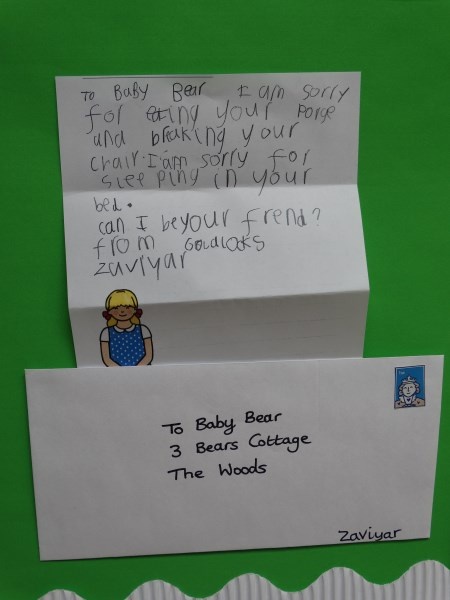 To Baby Bear I am sorry
for eting your porge
and braking your
chair. I am sorry for
sleeping in your
bed.
can I be your frend?
from GOLDLOCKS
zaviyar
To Baby Bear
3 Bears Cottage
The Woods
Zaviyar